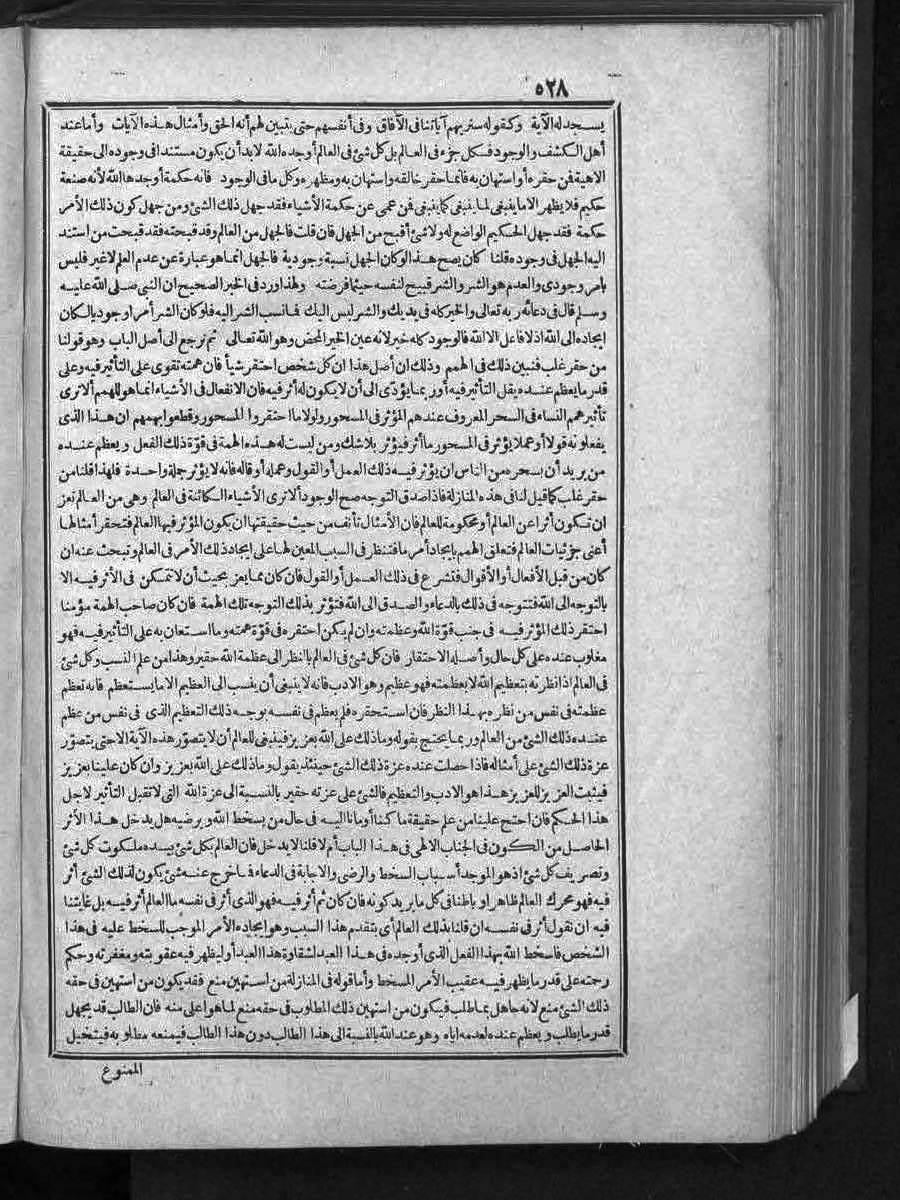 ٥٢٨
يسجد له الآية وكقوله سنريهم آياتنا في الآفاق وفي أنفسهم حتى يتبين لهم أنه الحق وأمثال هذه الآيات وأما عند
أهل الكشف والوجود فكل جزء في العالم بل كل شئ في العالم أوجده الله لابد أن يكون مستندا في وجوده الى حقيقة
الاهية فمن حقره أو استهان به فانما حقر خالقه واستهان به ومظهره وكل ما في الوجود فانه حكمة أوجدها الله لأنه صنعة
حكيم فلا يظهر الا ما ينبغي لما ينبغي كما ينبغي فمن عمى عن حكمة الأشياء فقد جهل ذلك الشئ ومن جهل كون ذلك الأمر
حكمة فقد جهل الحكيم الواضع له ولا شئ أقبح من الجهل فان قلت فالجهل من العالم وقد قبحته فقد قبحت من استند
اليه الجهل في وجوده قلنا كان يصح هذا لو كان الجهل نسبة وجودية فالجهل انما هو عبارة عن عدم العلم لا غير فليس
بأمر وجودي والعدم هو الشر والشر قبيح لنفسه حيثما فرضته ولهذا ورد في الخبر الصحيح ان النبي صلى الله عليه
وسلم قال في دعائه ربه تعالى والخير كله في يديك والشر ليس اليك فما نسب الشر اليه فلو كان الشر أمرا وجوديا لكان
ايجاده الى الله اذ لا فاعل الا الله فالوجود كله خير لأنه عين الخير المحض وهو الله تعالى ثم نرجع الى أصل الباب وهو قولنا
من حقر غلب فنبين ذلك في الهمم وذلك ان أصل هذا ان كل شخص احتقر شيأ فان همته تقوى على التأثير فيه وعلى
قدر ما يعظم عنده يقل التأثير فيه أو ربما يؤدّى الى أن لا يكون له أثر فيه فان الانفعال في الأشياء انما هو للهمم ألا ترى
تأثير همم النساء في السحر المعروف عندهم المؤثر في المسحور ولولا ما احتقروا المسحور وقطعوا بهممهم ان هذا الذي
يفعلونه قولا أو عملا يؤثر في المسحور ما أثر فيؤثر بلاشك ومن ليست له هذه الهمة في قوّة ذلك الفعل ويعظم عنده
من يريد أن يسحره من الناس ان يؤثر فيه ذلك العمل أو القول وعمله أو قاله فانه لا يؤثر جملة واحدة فلهذا قلنا من
حقر غلب كما قيل لنا في هذه المنازلة فاذا صدق التوجه صح الوجود ألا ترى الأشياء الكائنة في العالم وهي من العالم تعز
ان تكون أثرا عن العالم أو محكومة للعالم فان الأمثال تأنف من حيث حقيقتها ان يكون المؤثر فيها العالم فتحقر أمثالها
أعنى جزئيات العالم فتعلق الهمم بايجاد أمر ما فتنظر في السبب المعين لها على ايجاد ذلك الأمر في العالم وتبحث عنه ان
كان من قبل الأفعال أو الأقوال فتشرع في ذلك العمل أو القول فان كان مما يعز بحيث أن لا تتمكن في الأثر فيه الا
بالتوجه الى الله فتتوجه في ذلك بالدعاء والصدق الى الله فتؤثر بذلك التوجه تلك الهمة فان كان صاحب الهمة مؤمنا
احتقر ذلك المؤثر فيه في جنب قوّة الله وعظمته وان لم يكن احتقره في قوّة همته وما استعان به على التأثير فيه فهو
مغلوب عنده على كل حال وأصله الاحتقار فان كل شئ في العالم بالنظر الى عظمة الله حقير وهذا من علم النسب وكل شئ
في العالم اذا نظرته بتعظيم الله لا بعظمته فهو عظيم وهو الادب فانه لا ينبغي أن ينسب الى العظيم الا ما يستعظم فانه تعظم
عظمته في نفس من نظره بهذا النظر فان استحقره فلم يعظم في نفسه بوجه ذلك التعظيم الذي في نفس من عظم
عنده ذلك الشئ من العالم وربما يحتج بقوله وما ذلك على الله بعزيز فينبغي للعالم أن لا يتصوّر هذه الآية الا حتى يتصوّر
عزة ذلك الشئ على أمثاله فاذا حصلت عنده عزة ذلك الشئ حينئذ يقول وما ذلك على الله بعزيز وان كان علينا بعزيز
فيثبت العزيز للعزيز هذا هو الادب والتعظيم فالشئ على عزته حقير بالنسبة الى عزة الله التي لا تقبل التأثير لاجل
هذا الحكم فان احتج علينا من علم حقيقة ما كنا أومأنا اليه في حال من يسخط الله ويرضيه هل يدخل هذا الأثر
الحاصل من الكون في الجناب الالهي في هذا الباب أم لا قلنا لا يدخل فان العالم بكل شئ بيده ملكوت كل شئ
وتصريف كل شئ اذ هو الموجد أسباب السخط والرضى والاجابة في الدعاء فما خرج عنه شئ يكون لذلك الشئ أثر
فيه فهو محرك العالم ظاهرا وباطنا في كل ما يريد كونه فان كان ثم أثر فيه فهو الذي أثر في نفسه ما العالم أثر فيه بل غايتنا
فيه ان نقول أثر في نفسه ان قلنا بذلك العالم أي بتقدم هذا السبب وهو ايجاده الأمر الموجب للسخط عليه في هذا
الشخص فأسخط الله بهذا الفعل الذي أوجده في هذا العبد لشقاوة هذا العبد أو ليظهر فيه عقوبته ومغفرته وحكم
رحمته على قدر ما يظهر فيه عقيب الأمر المسخط وأما قوله في المنازلة من استهين منع فقد يكون من استهين في حقه
ذلك الشئ منع لانه جاهل بما طلب فيكون من استهين ذلك المطلوب في حقه منع لما هو أعلى منه فان الطالب قد يجهل
قدر ما يطلب ويعظم عنده لعدمه اياه وهو عند الله بالنسبة الى هذا الطالب دون هذا الطالب فيمنعه مطلوبه فيتخيل
الممنوع